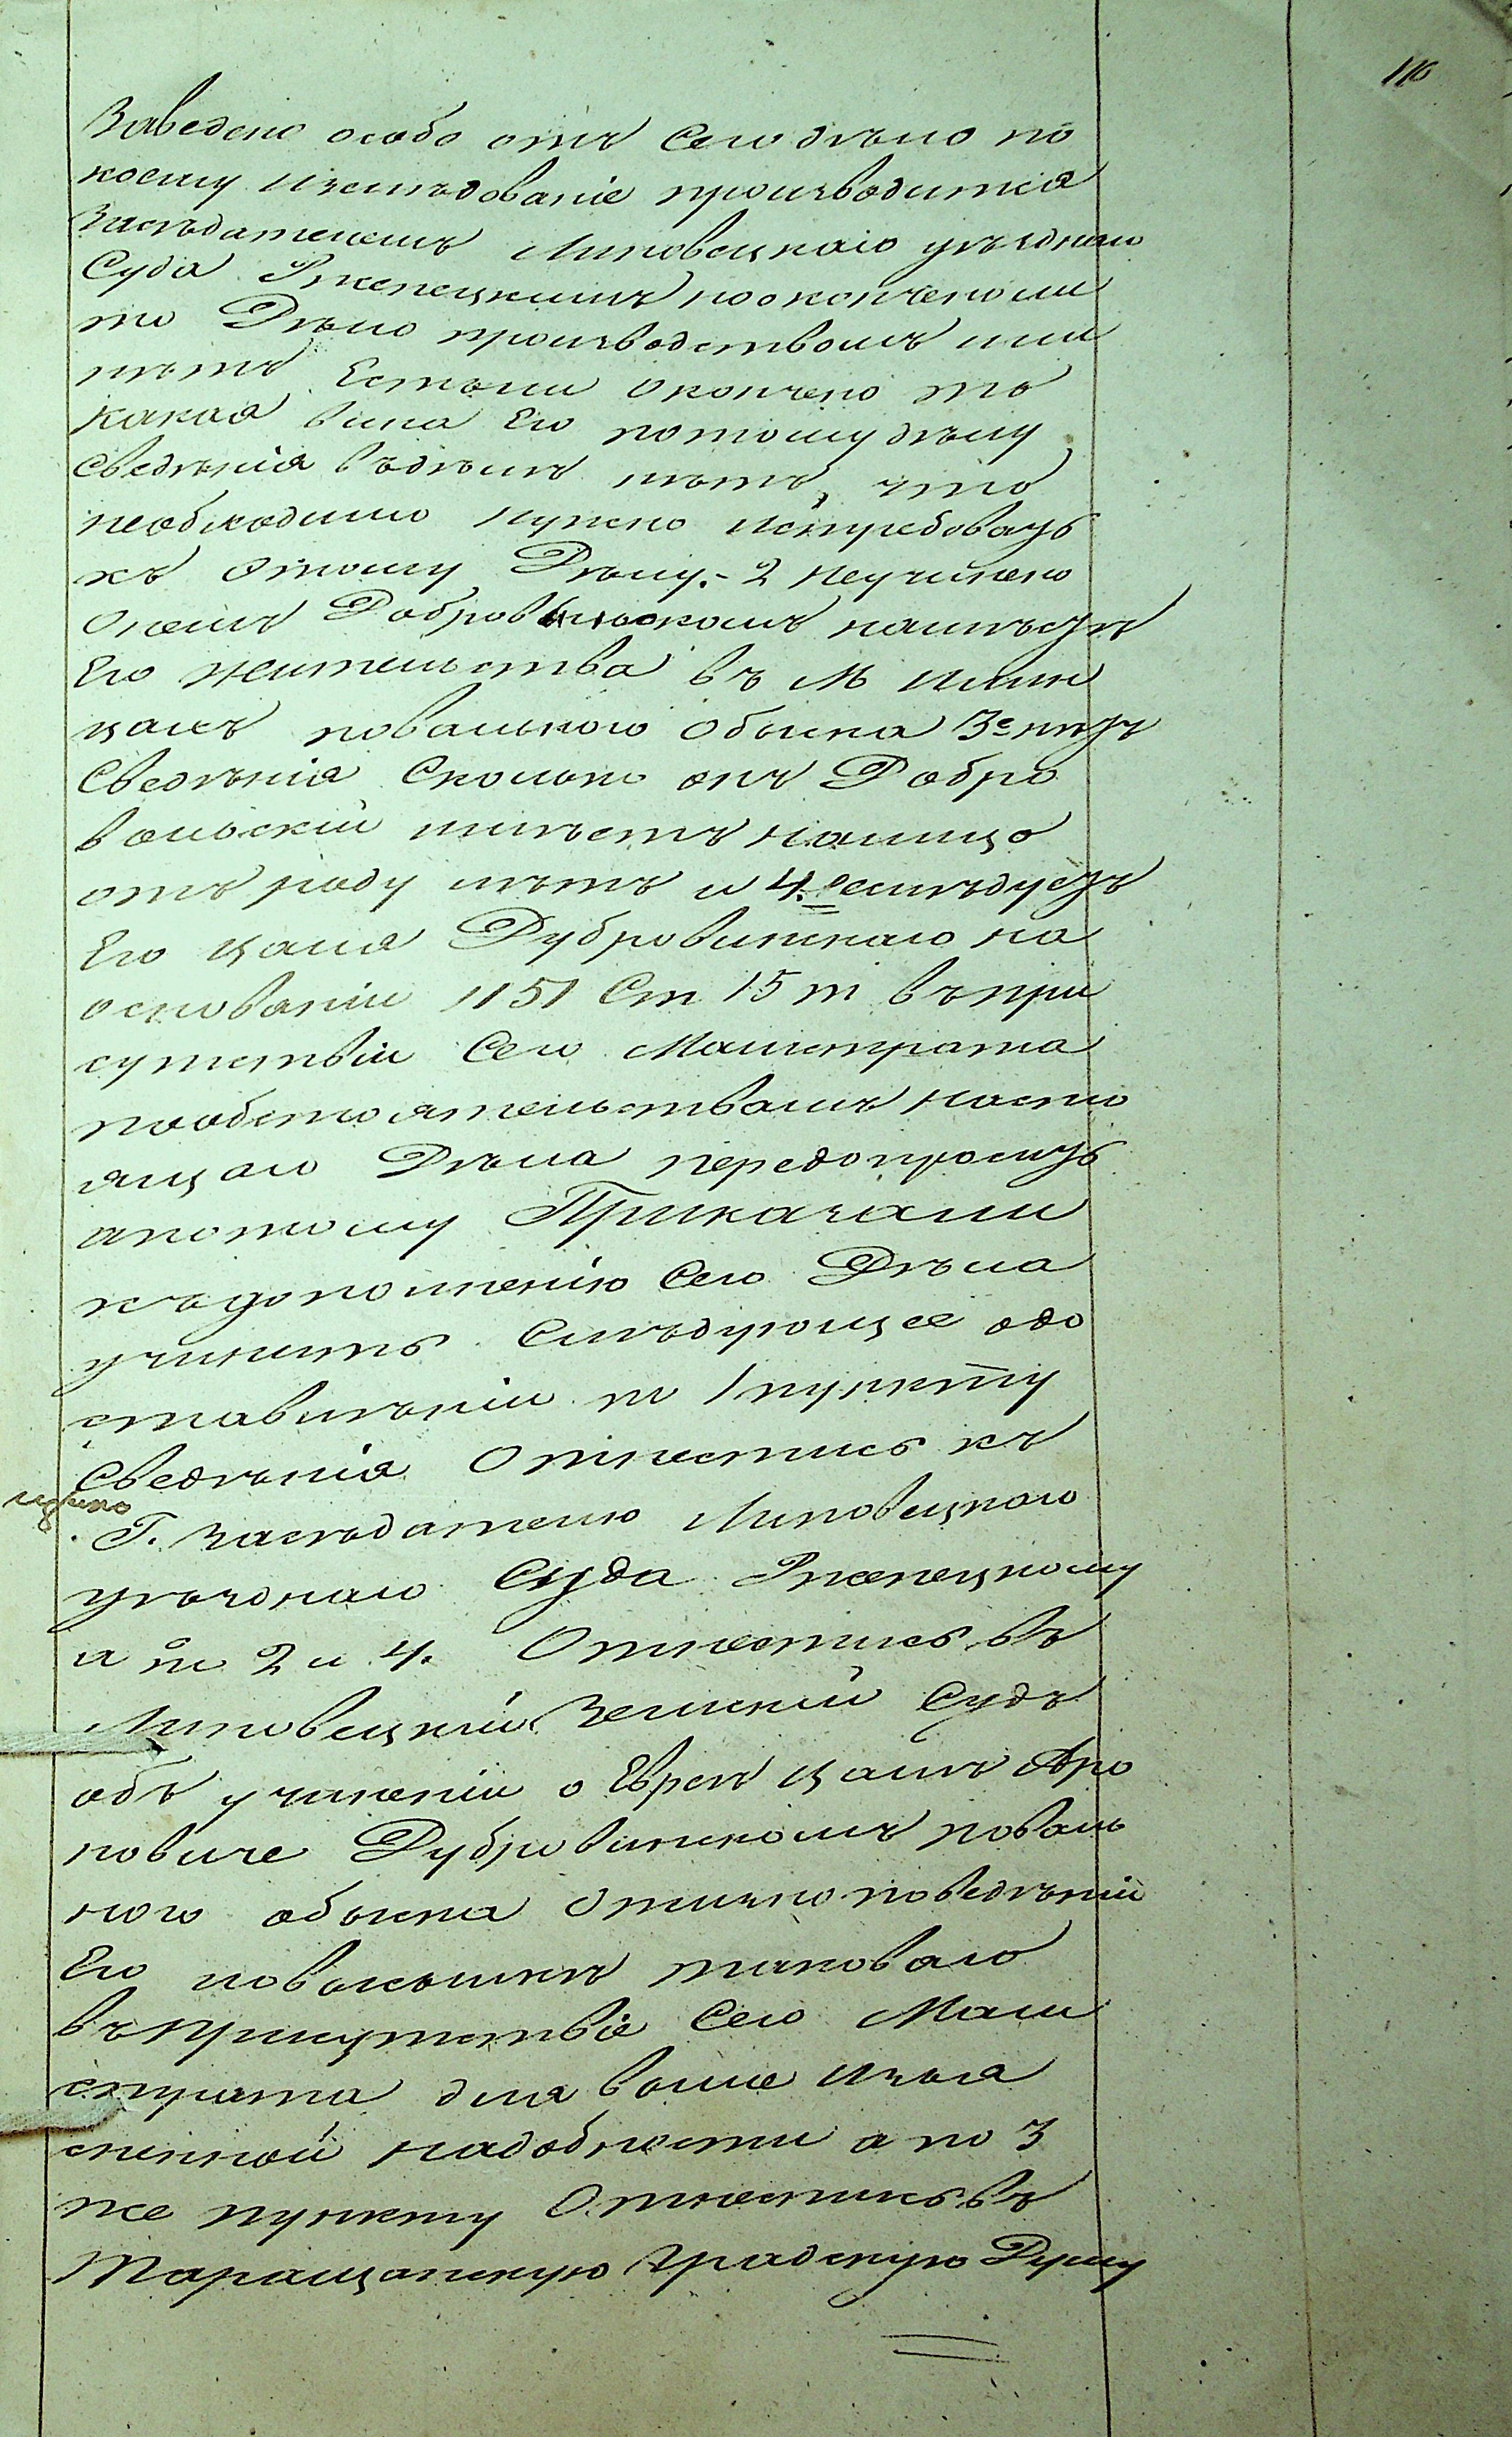 110
Заведено особо отъ Сего дѣло по
коему изслѣдованіе производится
Засѣдателемъ Липовецкаго уѣзднаго
Суда Ржепецкимъ покончено ли
то Дѣло производствомъ или
нѣтъ Естьли окончено то
какая вина Его потому дѣлу
сведѣнія вѣдѣлѣ нѣтъ, что
необходимо нужно истребовать
къ Этому Дѣлу.- 2 Неучинено
Онемъ Добровольскомъ намѣстѣ
Его жительства въ М Илин
цахъ повального Обыска 3е нѣтъ
Сведѣнія Сколько онъ Добро
вольскій имѣетъ налицо
отъ роду лѣтъ и 4. Слѣдуетъ
Его Цаля Дубровинскаго на
основаніи 1151 Ст 15 т въ при
сутствіи Сего Магистрата
пообстоятельствамъ насто
ящаго Дѣла передопросить
апотому Приказали
къ дополненію Сего Дѣла
учинить Слѣдующее одо
ставлѣніи по 1 пункту
Сведѣнія Отнестись къ
Г. Засѣдателю Липовецкаго
уѣзднаго Суда Ржепецкому
а по 2 и 4. Отнестись въ
Липовецкій Земскій Судъ
объ учиненіи о Евреѣ Цалѣ Аро
новиче Дубровинскомъ поваль
ного обыска
Его таковаго
въ присутствіе Сего Маги
страта для выше изъя
сненной надобности а по 3
же пункту Отнестись въ
Таращанскую Градскую Думу